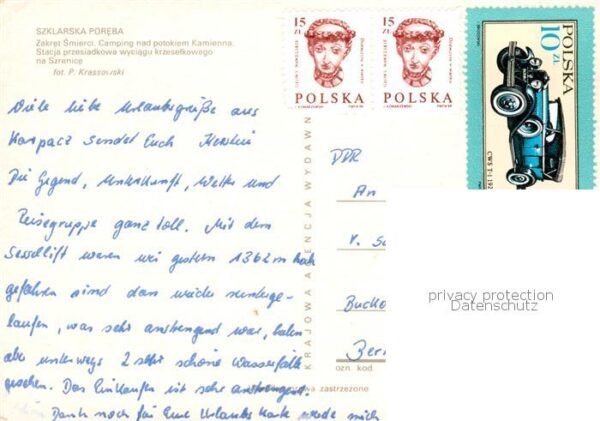 SZKLARSKA PORĘBA
Zakręt Śmierci. Camping nad potokiem Kamienna.
Stacja przesiadkowa wyciągu krzesełkowego
na Szrenicę
fot. P. Krassowski
Viele liebe Urlaubsgrüße aus
Karpacz sendet Euch Kerstin
Die Gegend, Unterkunft, Wetter und
Reisegruppe ganz toll. Mit dem
Sessellift waren wir gestern 1362 m hoch
gefahren sind dann wieder runterge-
laufen, was sehr anstrengend war, haben
aber unterwegs 2 sehr schöne Wasserfälle
gesehen. Das Einkaufen ist sehr anstrengend.
Dank noch für Eure Urlaubskarte
KRAJOWA AGENCJA WYDAWN
zastrzeżone
15 ZŁ
POLSKA
15 ZŁ
POLSKA
POLSKA
10 ZŁ
CWS T-1
DDR
An
V.
Bucko
Ber
ozn. kod
privacy protection
Datenschutz